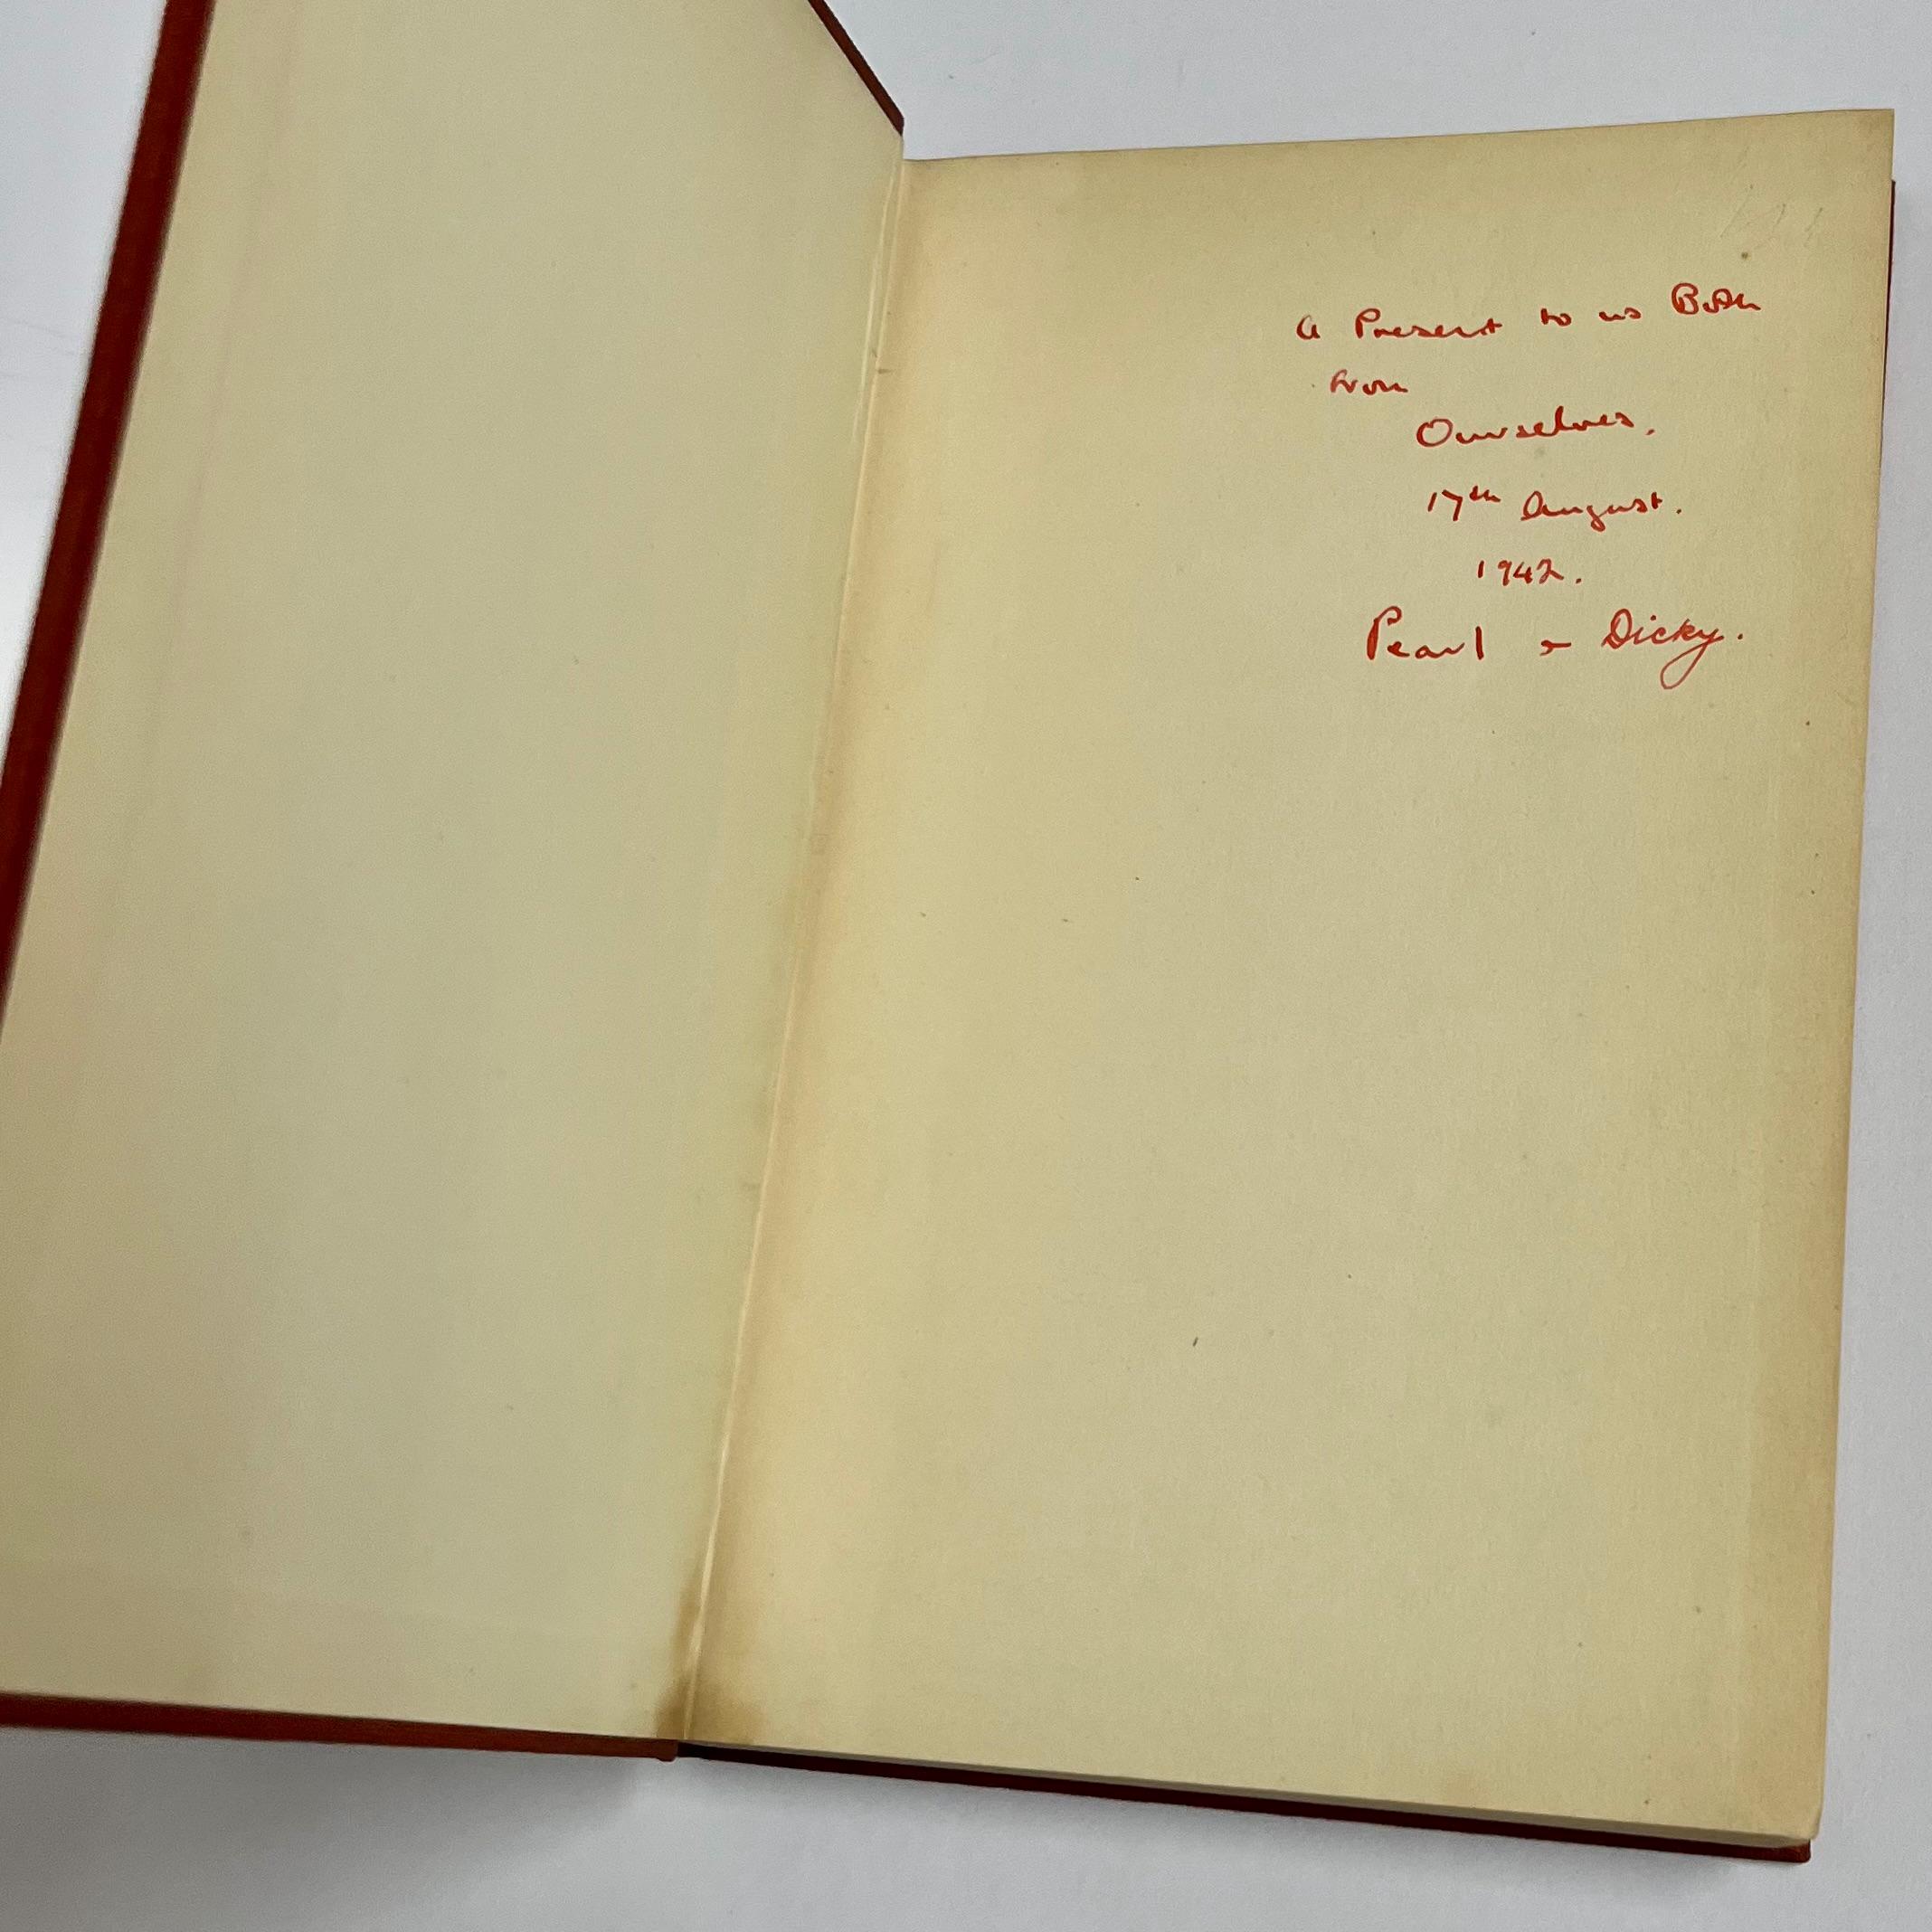 A Present to us Both
from
Ourselves.
17th August.
1942.
Pearl & Dicky.